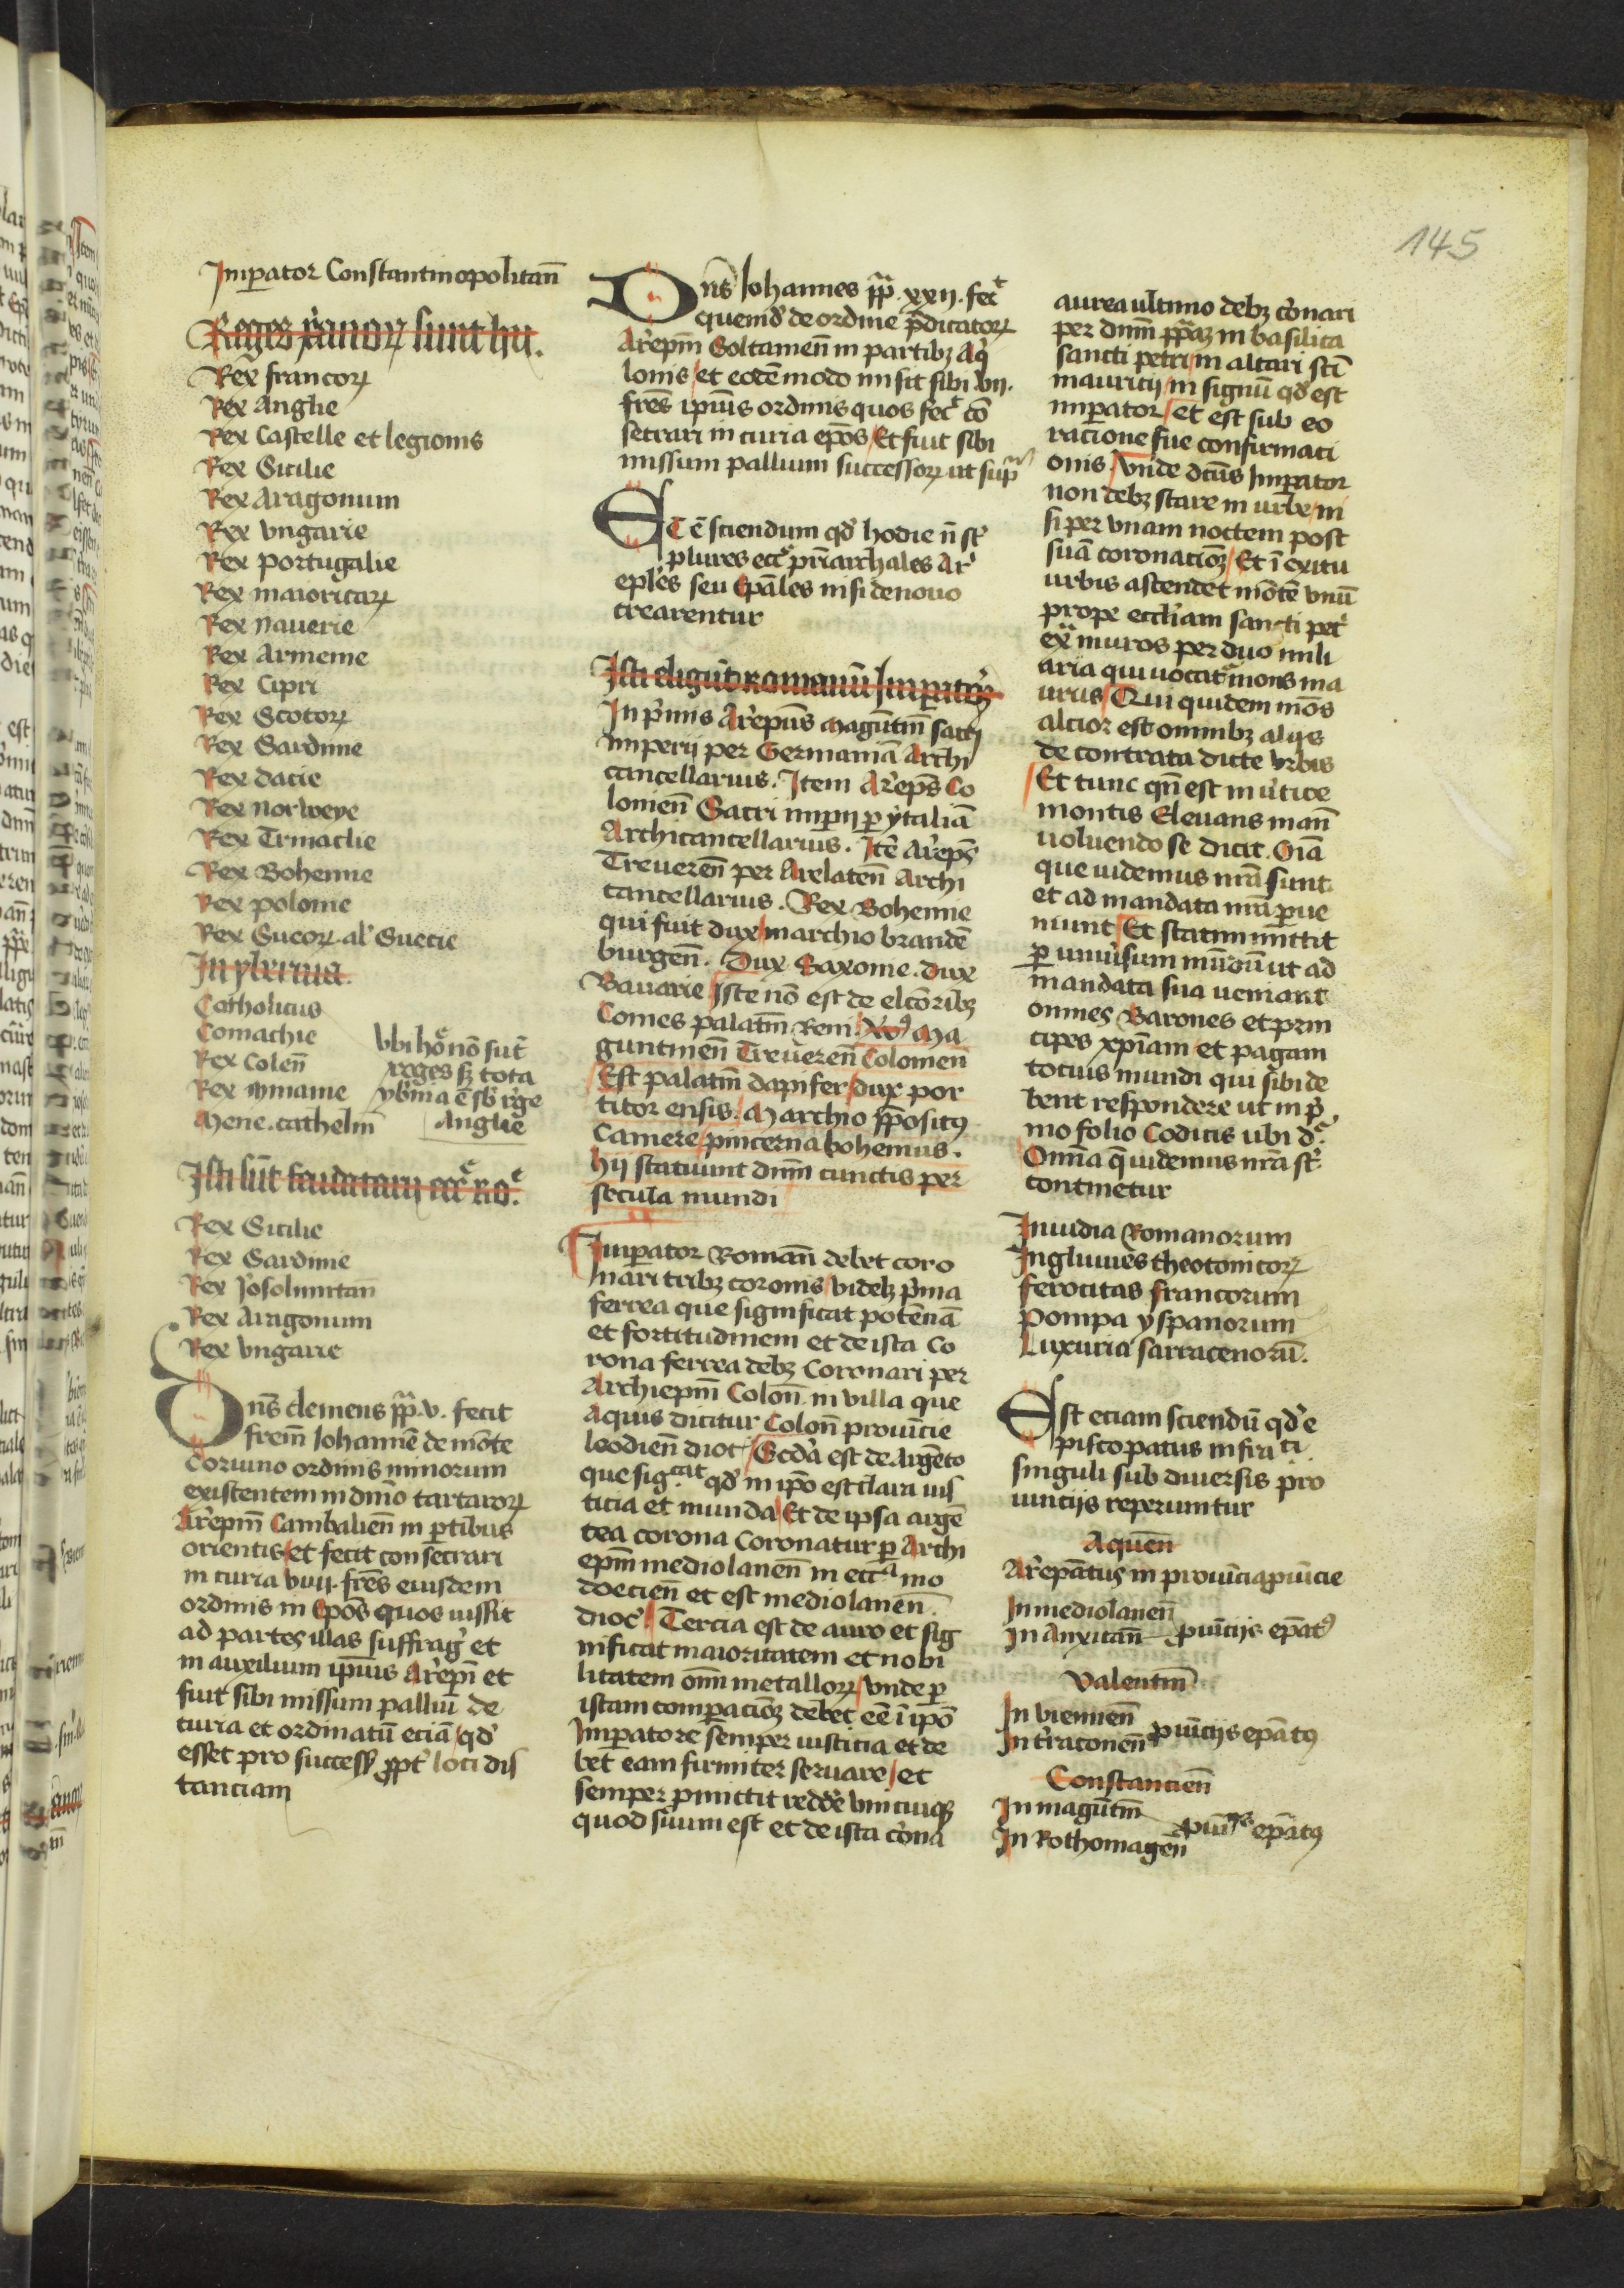 145
Imperator Constantinopolitan̄
Reges xp̄anoꝝ sunt hii.
Rex francoꝝ
Rex Anglie
Rex Castelle et legionis
Rex Sicilie
Rex Aragonum
Rex vngarie
Rex portugalie
Rex maioricaꝝ
Rex nauerie
Rex Armenie
Rex Cipri
Rex Scotoꝝ
Rex Sardinie
Rex dacie
Rex norweye
Rex Trinaclie
Rex Bohemie
Rex polonie
Rex Sueoꝝ al' Suecie
In ybernia
Catholicus
Comachie
Rex Colen̄
Rex mimanie
Mene. cathelin̄
vbi hoᵉ nō sūt
reges sꝫ tota
ybn̄ia ē sb' rege
Anglie
Isti sūt feudatarii ecc̄ᵉ roᵉ.
Rex Sicilie
Rex Sardinie
Rex Ierosolimitan̄
Rex Aragonum
Rex vngarie
Dn̄s clemens pp̄. v. fecit
frem̄ Iohannē de mōte
Coruino ordinis minorum
existentem in dn̄io tartaroꝝ
Ar̄epm̄ Cambalien̄ in ꝑtibus
orientis et fecit consecrari
in curia vıĳ. fres̄ eiusdem
ordinis in Epōs quos iussit
ad partes illas suffrag' et
in auxilium ipīus Ar̄epi̅ et
fuit sibi missum palliū de
curia et ordinatū eciā qd'
esset pro success' ꝓpt' loci dis
tanciam
Dn̄s Iohannes pp̄. xxij. fecᵗ
quend' de ordine p̄dicatoꝝ
Ar̄epm̄ Soltamen̄ in partibꝫ Aq'
lonis et eodē modo misit sibi vij.
fres̄ ipīus ordinis quos fecᵗ cō
secrari in curia epōs Et fuit sibi
missum pallium successoꝝ ut supᵃ
Et ē sciendum qd' hodie n̄ st'
plures eccᵉ priarchales Ar'
epl'es seu Epāles nisi de nouo
crearentur
Isti eligūt romanū Impatoꝝ
In p'mis Ar̄epūs Magūtin̄ sacri
imperii per Germaniā Archi
cancellarius. Item Ar̄eps̄ Co
lonien̄ Sacri impij ꝑ ytaliā
Archicancellarius. Itē Ar̄eps̄
Treueren̄ per Arelaten̄ Archi
cancellarius. Rex Bohemie
qui fuit dux marchio brandē
burgen̄. Dux Saxonie. dux
Bauarie Iste nō est de elcōribꝫ
Comes palatin̄ Reni. Ma
guntinen̄ Treueren̄ Colonien̄
Est palatin̄ dapifer dux por
titor ensis. Marchio ꝓpositꝰ
Camere pincerna bohemus.
hij statuunt dnm̄ cunctis per
secula mundi
Imperator Roman̄ debet coro
nari tribꝫ coronis videlꝫ p'ma
ferrea que significat potēnā
et fortitudinem et de ista co
rona ferrea debꝫ Coronari per
Archiepm̄ Colon̄ in villa que
Aquis dicitur Colon̄ prouīcie
leodien̄ dioc' Scd'a est de Argēto
que sigᶜᵃᵗ qd' in ipō est clara ius
ticia et munda Et de ipsa argē
tea corona Coronatur ꝑ Archi
epm̄ mediolanen̄ in eccᵃ mo
doecien̄ et est mediolanen̄
dioc' Tercia est de auro et sig
nificat maioritatem et nobi
litatem om̄ metalloꝝ vnde ꝑ
istam compacōꝫ debet eē ī ipō
Imperatore semper iusticia et de
bet eam firmiter seruare et
semper p̄mittit redde' vnicuiqꝫ
quod suum est et de ista c'ona
aurea ultimo debꝫ c'onari
per dnm̄ pp̄aꝫ in basilica
sancti petri in altari sc̄i
mauricij in signū qd' est
imperator et est sub eo
racione sue confirmaci
onis. Vnde dc̄us Imperator
non debꝫ stare in urbe ni
si per vnam noctem post
suā coronacioꝫ Et ī exitu
urbis ascendet mōtē vnū
prope ecclīam sancti petᶦ
exᵃ muros per duo mili
aria qui uocat' mons ma
urus Qui quidem mōs
alcior est omnibꝫ alijs
de contrata dicte vrbis
Et tunc qn̄ est in v'tice
montis Eleuans man̄
uoluendo se dicit. Oīa
que uidemus nrā sunt
et ad mandata nrā ꝑue
niunt Et statim mittit
ꝑ uniu'sum mūdū ut ad
mandata sua ueniant
omnes Barones et prin
cipes xpīani et pagani
tocius mundi qui sibi de
bent respondere ut in p'
mo folio Codicis ubi dᵣ.
Omnia q̄ uidemus nrā st'
continetur
Inuidia Romanorum
Ingluuies theotonicoꝝ
ferocitas francorum
Pompa yspanorum
Luxuria sarracenorū.
Est eciam sciendū qd' e
piscopatus infra ti
singuli sub diuersis pro
uincijs reperiuntur
Aquen̄
Ar̄epātus in prouīcia ꝓuīcie
In mediolanen̄
In Anxitan̄ ꝓuīcijs epātꝰ
Valentin̄
In viennen̄
In t'raconen̄ ꝓuīcijs epātꝰ
Constancien̄
In magūtin̄
In Rothomagen̄ ꝓuīⁱʲˢ epātꝰ